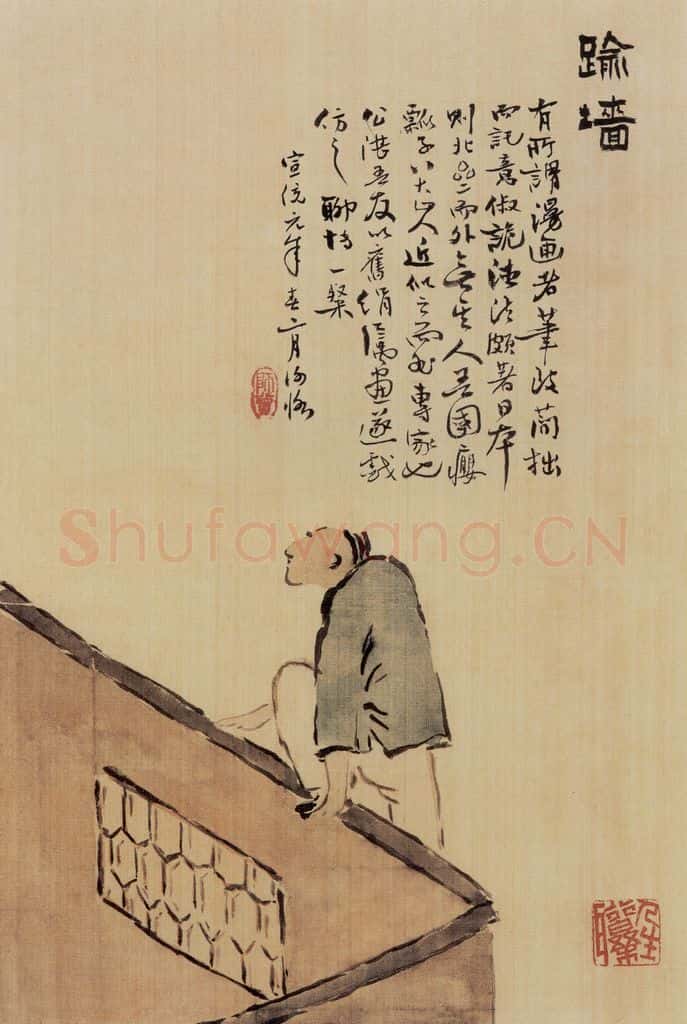 踰墻
有所謂漫画者筆致簡拙
而託意俶詭涵法頗著日本
則北斎而外無其人吾國癭
瓢子八大山人近似之而非專家也
公湛吾友以舊絹属畫遂戲
仿之聊博一粲
宣統元年春二月衡恪
師曾
Shufawang.CN